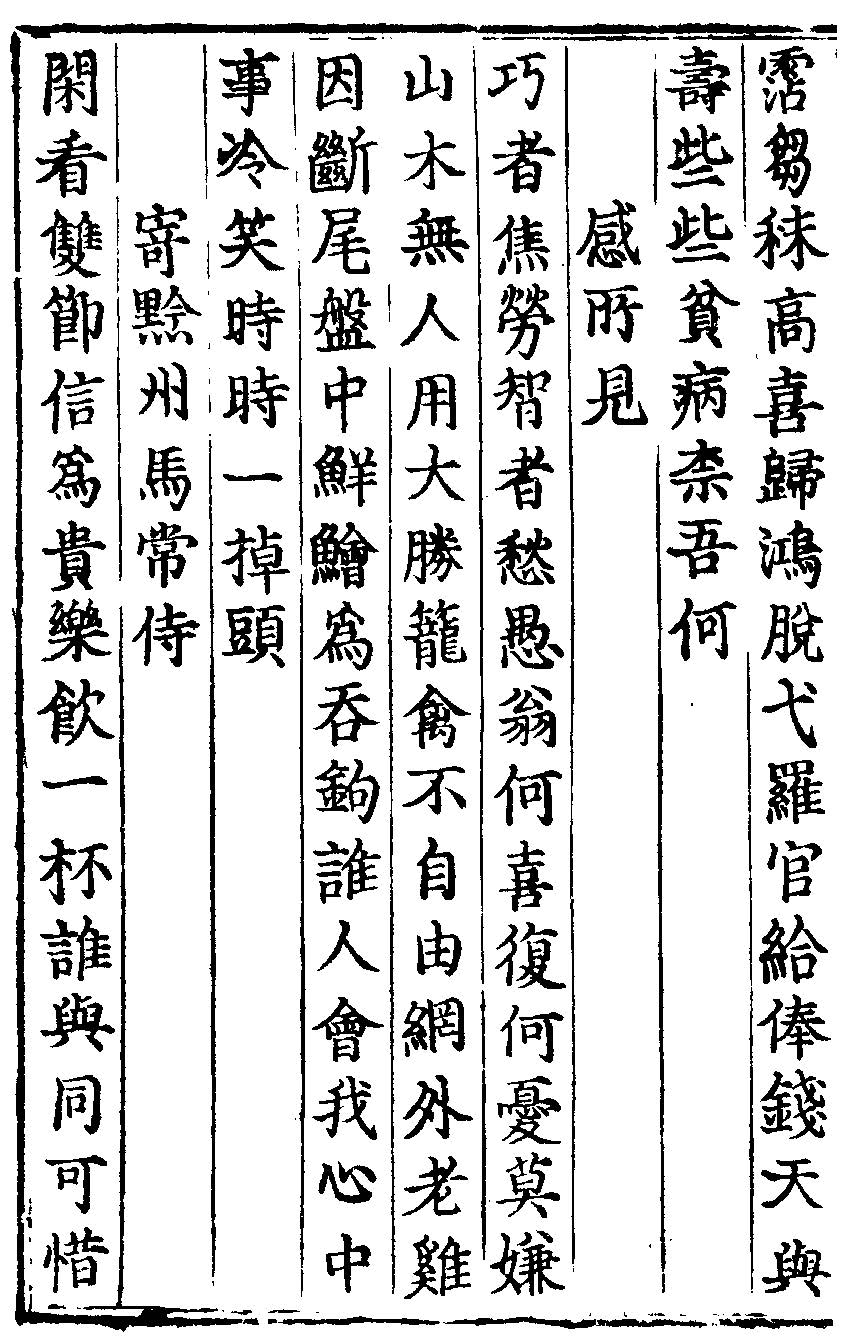 霑芻秣高喜歸鴻脫弋羅官給俸錢天與
壽些些貧病柰吾何
感所見
巧者焦勞智者愁愚翁何喜復何憂莫嫌
山木無人用大勝籠禽不自由網外老雞
因斷尾盤中鮮鱠爲吞鉤誰人會我心中
事冷笑時時一掉頭
寄黔州馬常侍
閑看雙節信爲貴樂飲一杯誰與同可惜